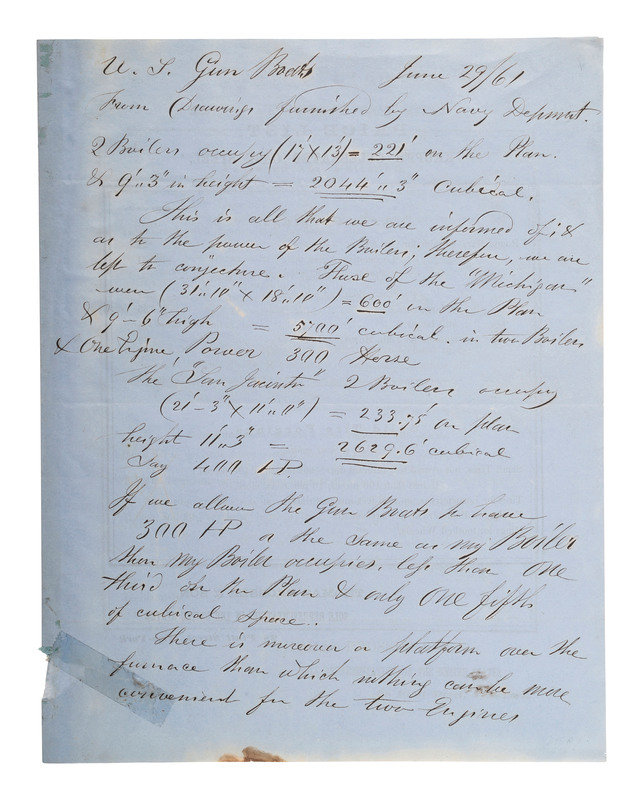 U. S. Gun Boats June 29/61
From Drawings furnished by Navy Depmnt.
2 Boilers occupy (17' X 13') = 221' on the Plan.
& 9'„3" in height = 2044'„3" cubical.
This is all that we are informed of; &
as to the power of the Boilers; therefore, we are
left to conjecture. Those of the "Michigan"
were (31'„10" X 18'„10") = 600' in the Plan
& 9'-6" high = 5700' cubical. in two Boilers
& One Engine Power 300 Horse
The "San Jacinto" 2 Boilers occupy
(21'-3" X 11'„0") = 233.75' on plan
height 11'„3" = 2629.6' cubical
Say 400 HP.
If we allow the Gun Boats to have
300 HP or the same as my Boiler
then my Boiler occupies less than One
third on the Plan & only One fifth
of cubical space..
There is moreover a platform over the
furnace than which nothing can be more
convenient for the two Engines